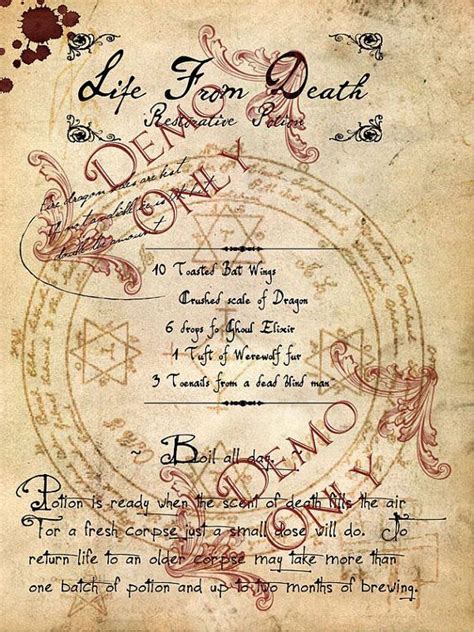 Life From Death
Restorative Potion
Demo
Only
Fire dragon scales are best
double the amount
10 Toasted Bat Wings
Crushed scale of Dragon
6 drops fo Ghoul Elixir
1 Tuft of Werewolf fur
3 Toenails from a dead blind man
~ Boil all day. ~
Demo
Only
Potion is ready when the scent of death fills the air
For a fresh corpse just a small dose will do. To
return life to an older corpse may take more than
one batch of potion and up to two months of brewing.